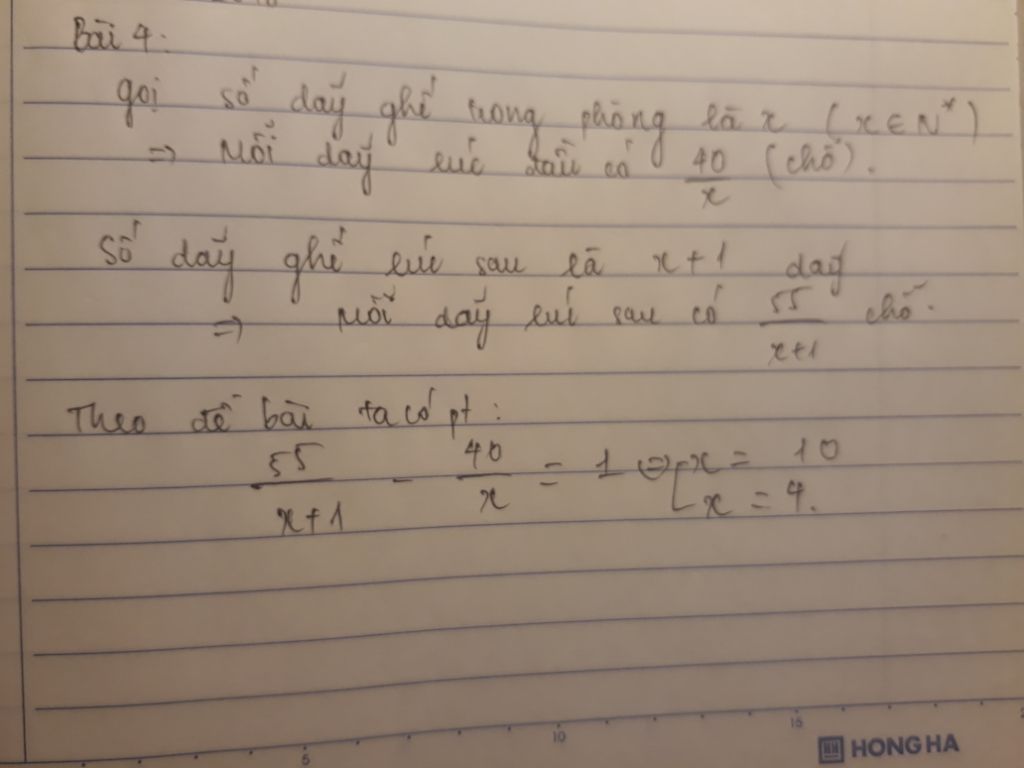 Bài 4:
gọi số dãy ghế trong phòng là x (x ∈ N*)
=> Mỗi dãy lúc đầu có 40/x (chỗ).
Số dãy ghế lúc sau là x+1 dãy
=> Mỗi dãy lúc sau có 55/x+1 chỗ.
Theo đề bài ta có pt:
55/x+1 - 40/x = 1 <=> [x = 10
x = 4.
5 10 15
HONG HA